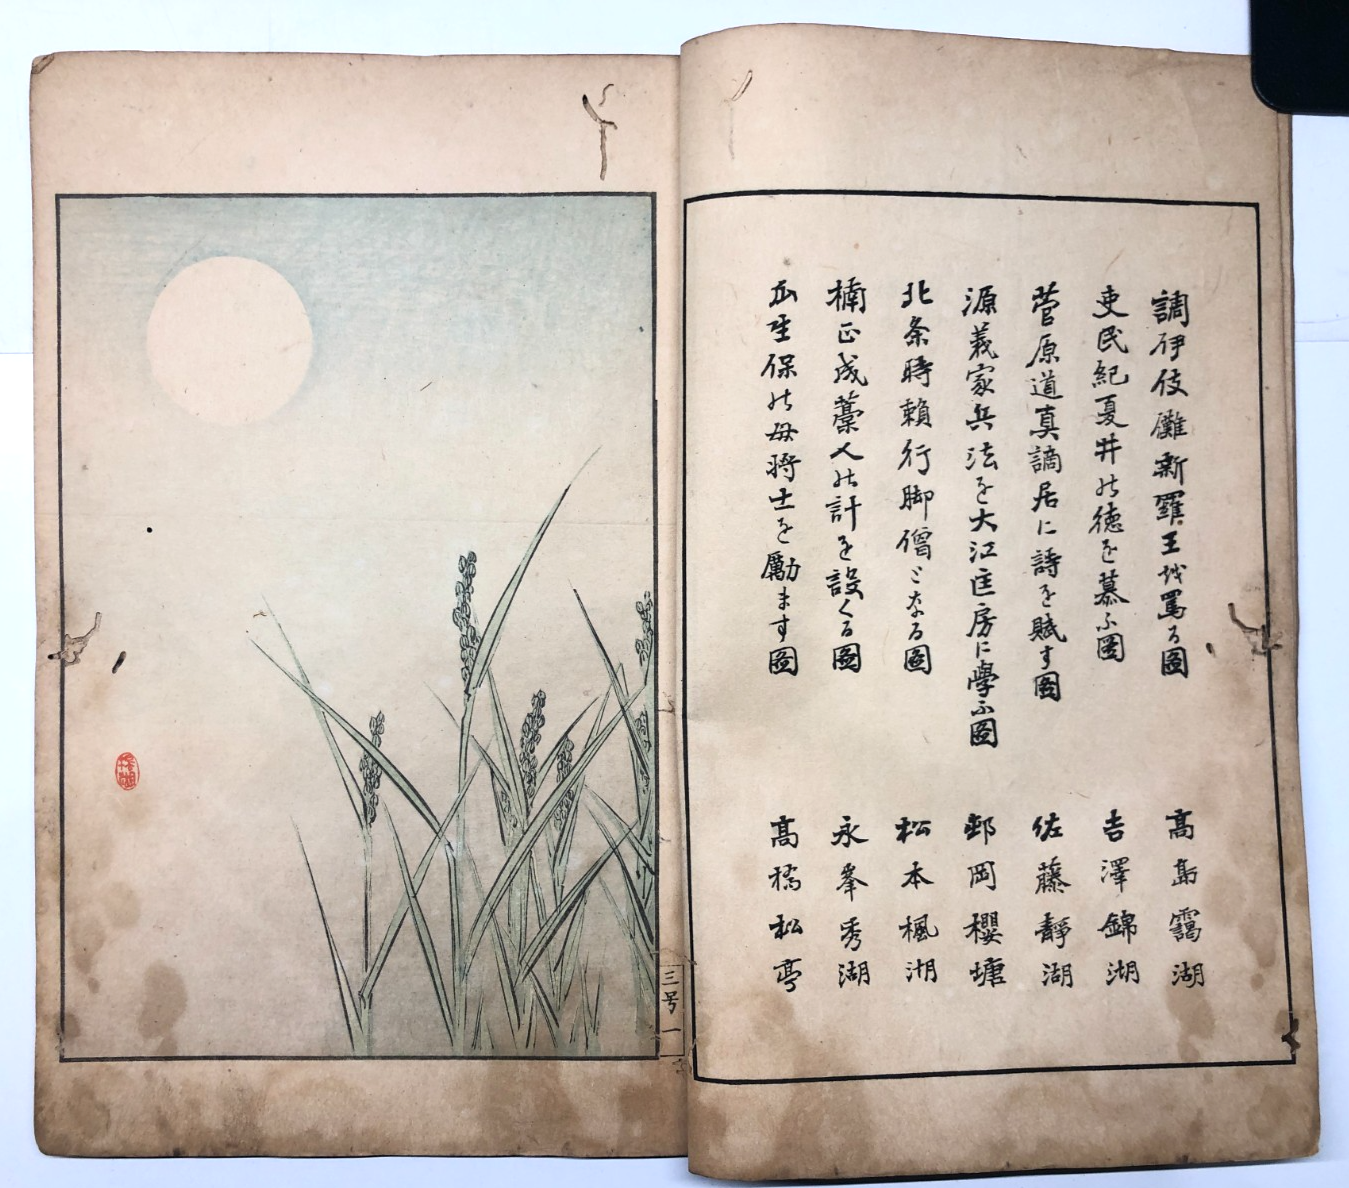 調伊伎儺新羅王を罵る圖 高島靄湖
吏民紀夏井の徳を慕ふ圖 吉澤錦湖
菅原道真謫居に詩を賦す圖 佐藤靜湖
源義家兵法を大江匡房に學ふ圖 邨岡櫻塘
北条時頼行脚僧となる圖 松本楓湖
楠正成藁人の計を設くる圖 永峯秀湖
瓜生保の母将士を勵ます圖 高橋松亭
三号 一